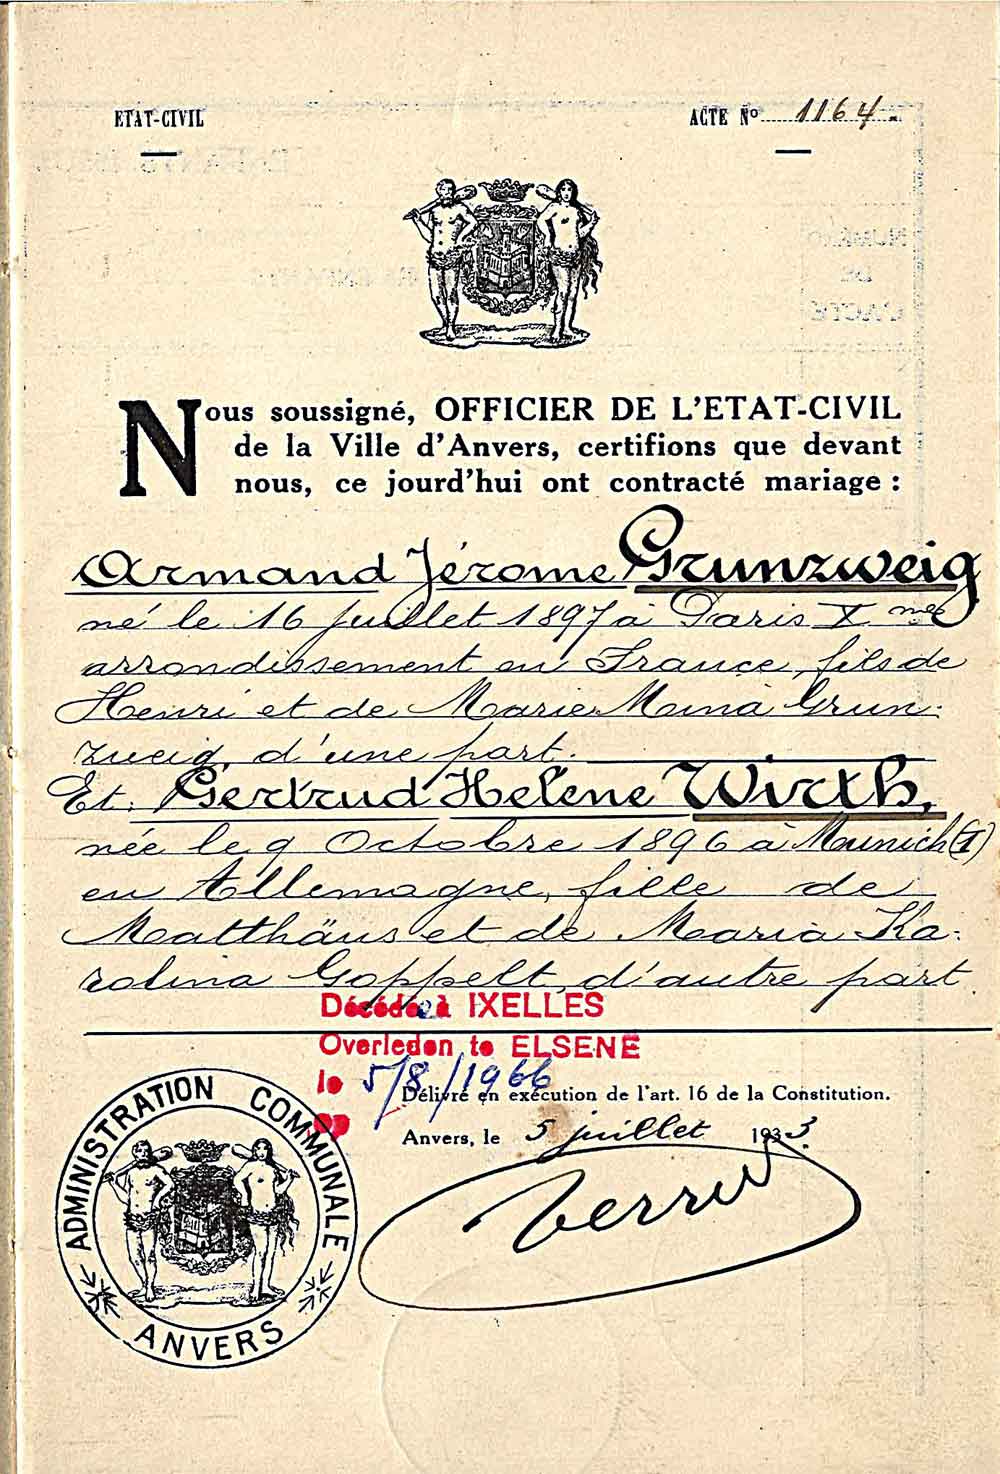 ETAT-CIVIL
ACTE No 1164.
Nous soussigné, OFFICIER DE L'ETAT-CIVIL
de la Ville d'Anvers, certifions que devant
nous, ce jourd'hui ont contracté mariage :
Armand Jérome Grunzweig
né le 16 juillet 1897 à Paris X me
arrondissement en France, fils de
Henri et de Marie Mina Grun-
zweig, d'une part.
Et: Gertrud Helene Wirth,
née le 9 Octobre 1896 à Munich (I)
en Allemagne, fille de
Matthäus et de Maria Ka-
rolina Goppelt, d'autre part
Décédée à IXELLES
Overleden te ELSENE
le 5/8/1966
Délivré en exécution de l'art. 16 de la Constitution.
Anvers, le 5 juillet 1933.
ADMINISTRATION COMMUNALE
ANVERS